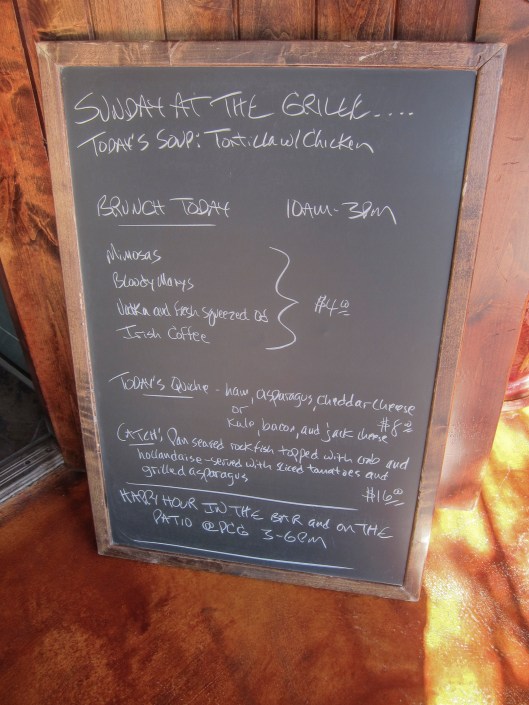 SUNDAY AT THE GRILLE....
TODAY'S SOUP: Tortilla w/ Chicken
BRUNCH TODAY 10AM-3PM
Mimosas
Bloody Marys
Vodka and fresh squeezed OJ
Irish Coffee
$4.00
TODAY'S Quiche - ham, asparagus, cheddar cheese
or
Kale, bacon, and jack cheese $8.00
CATCH: Pan seared rockfish topped with crab and
hollandaise - served with sliced tomatoes and
grilled asparagus
$16.00
HAPPY HOUR IN THE BAR and ON THE
PATIO @PCG 3-6PM